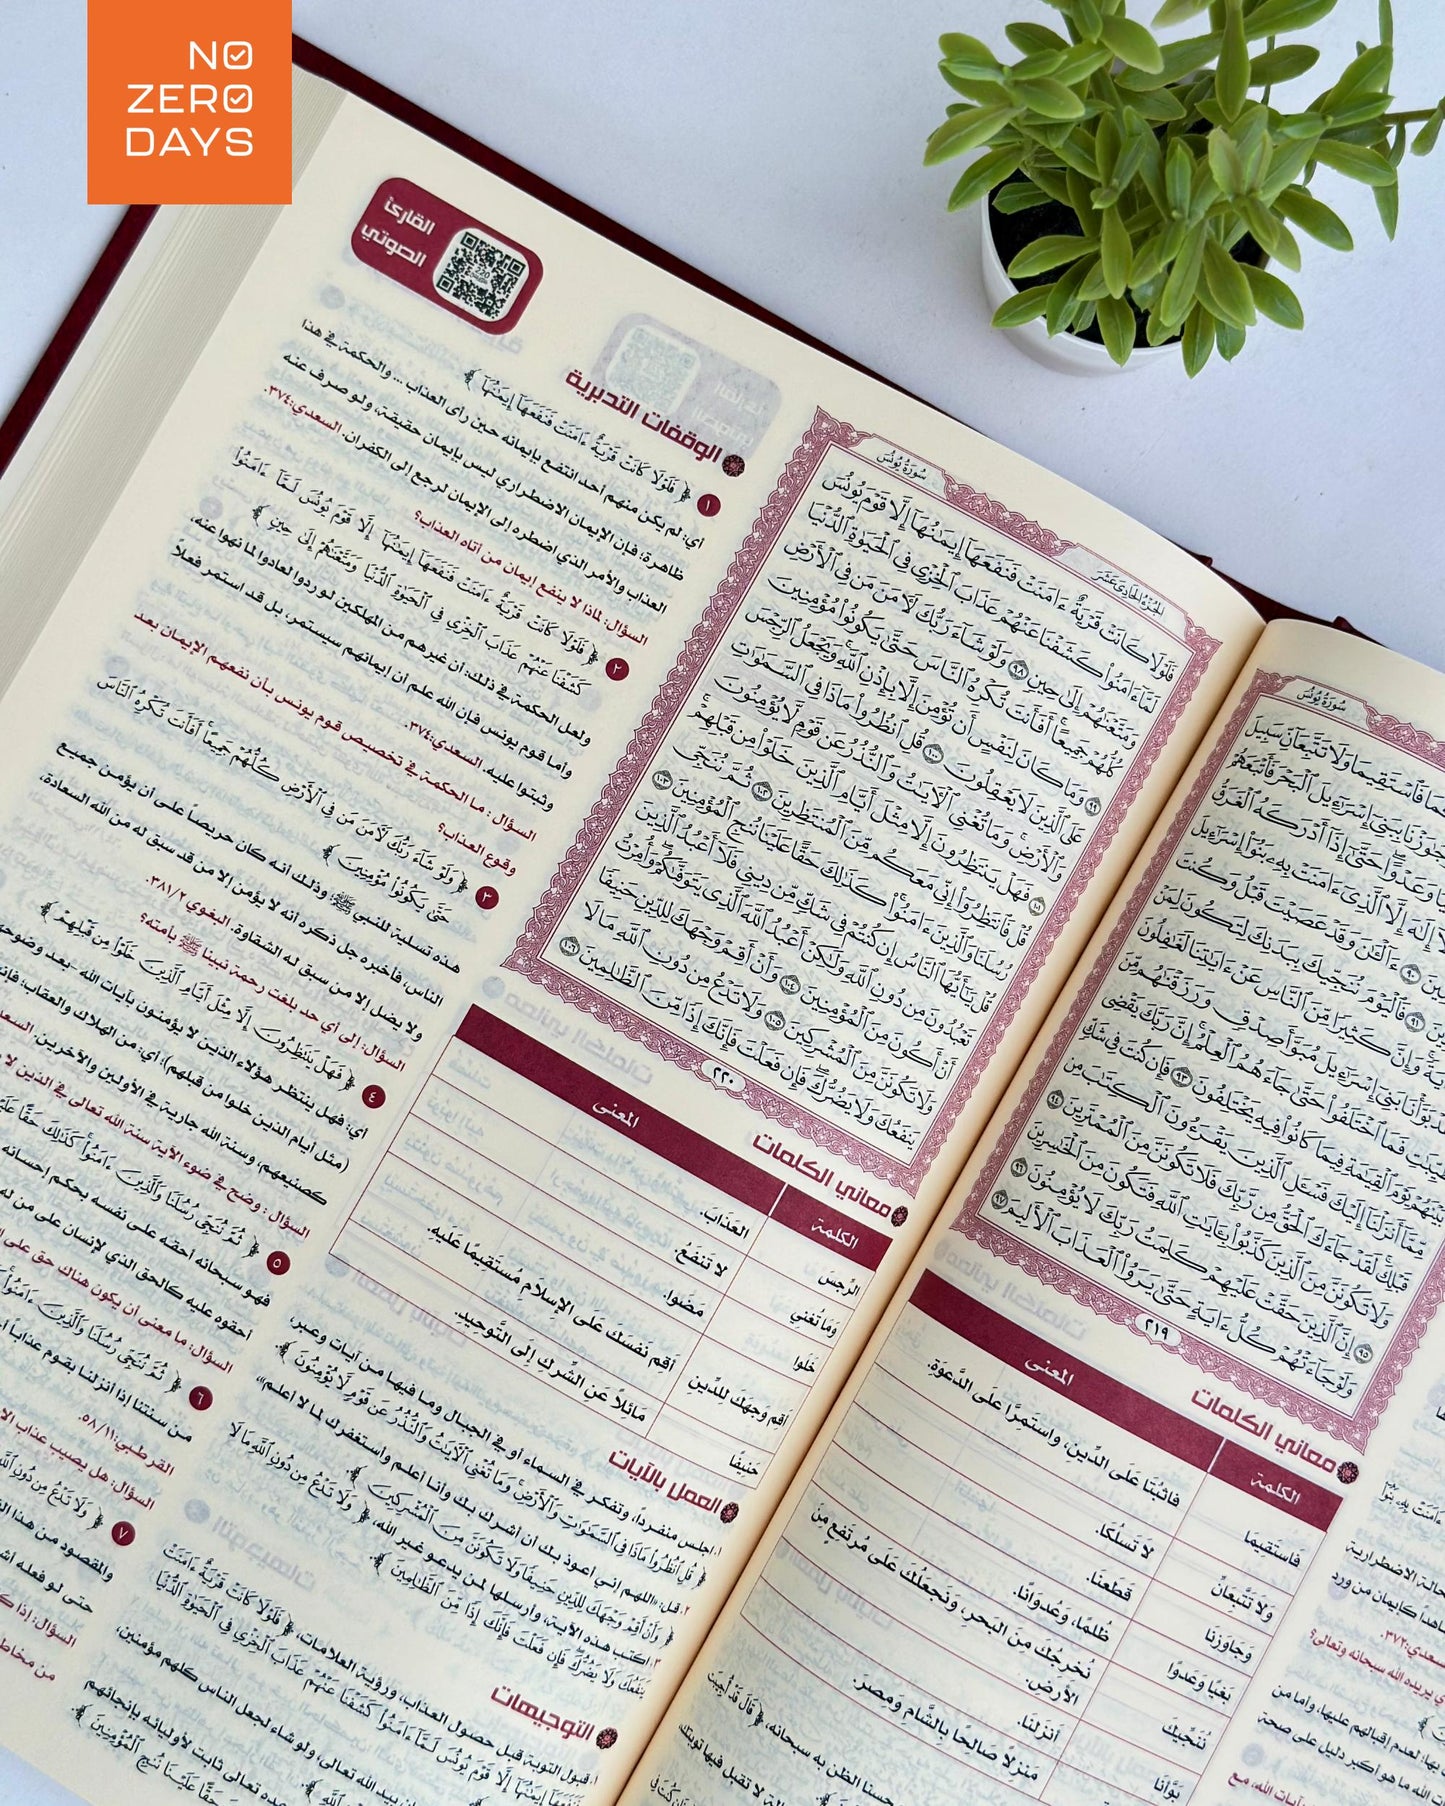 NO
ZERO
DAYS
القارئ
الصوتي
الوقفات التدبرية
١ ﴿ فَلَوْلَا كَانَتْ قَرْيَةٌ ءَامَنَتْ فَنَفَعَهَآ إِيمَٰنُهَآ ﴾
أي: لم يكن منهم أحد انتفع بإيمانه حين رأى العذاب ... والحكمة في هذا
ظاهرة؛ فإن الإيمان الاضطراري ليس بإيمان حقيقة، ولو صرف عنه
العذاب والأمر الذي اضطره إلى الإيمان لرجع إلى الكفران. السعدي:٣٧٤.
السؤال: لماذا لا ينفع إيمان من أتاه العذاب؟
٢ ﴿ فَلَوْلَا كَانَتْ قَرْيَةٌ ءَامَنَتْ فَنَفَعَهَآ إِيمَٰنُهَآ إِلَّا قَوْمَ يُونُسَ لَمَّآ ءَامَنُوا۟
كَشَفْنَا عَنْهُمْ عَذَابَ الْخِزْيِ فِي الْحَيَوٰةِ الدُّنْيَا وَمَتَّعْنَٰهُمْ إِلَىٰ حِينٍ ﴾
ولعل الحكمة في ذلك: أن غيرهم من المهلكين لو ردوا لعادوا لما نهوا عنه،
وأما قوم يونس فإن الله علم أن إيمانهم سيستمر، بل قد استمر فعلاً
وثبتوا عليه. السعدي:٣٧٤.
السؤال : ما الحكمة في تخصيص قوم يونس بأن نفعهم الإيمان بعد
وقوع العذاب؟
٣ ﴿ وَلَوْ شَآءَ رَبُّكَ لَءَامَنَ مَن فِي الْأَرْضِ كُلُّهُمْ جَمِيعًا ۚ أَفَأَنتَ تُكْرِهُ النَّاسَ
حَتَّىٰ يَكُونُوا۟ مُؤْمِنِينَ ﴾
هذه تسلية للنبي ﷺ؛ وذلك أنه كان حريصاً على أن يؤمن جميع
الناس، فأخبره جل ذكره أنه لا يؤمن إلا من قد سبق له من الله السعادة،
ولا يضل إلا من سبق له الشقاوة. البغوي ٣٨١/٢.
السؤال: إلى أي حد بلغت رحمة نبينا ﷺ بأمته؟
٤ ﴿ فَهَلْ يَنتَظِرُونَ إِلَّا مِثْلَ أَيَّامِ الَّذِينَ خَلَوْا۟ مِن قَبْلِهِمْ ﴾
أي: فهل ينتظر هؤلاء الذين لا يؤمنون بآيات الله -بعد وضوحها
(مثل أيام الذين خلوا من قبلهم)، أي: من الهلاك والعقاب؛ فإن
كصنيعهم، وسنة الله جارية في الأولين والآخرين.
السؤال : وضح في ضوء الآية سنة الله تعالى في الذين لا
٥ ﴿ ثُمَّ نُنَجِّي رُسُلَنَا وَالَّذِينَ ءَامَنُوا۟ ۚ كَذَٰلِكَ حَقًّا
فهو سبحانه أحقه على نفسه بحكم إحسانه
أحقوه عليه كالحق الذي لإنسان على من له
السؤال: ما معنى أن يكون هناك حق على
٦ ﴿ ثُمَّ نُنَجِّي رُسُلَنَا وَالَّذِينَ ءَامَنُوا۟
من سنتنا إذا أنزلنا بقوم عذاباً
القرطبي:٥٨/١١.
السؤال: هل يصيب عذاب
٧ ﴿ وَلَا تَدْعُ مِن دُونِ اللَّهِ
والمقصود من هذا
حتى لو فعله
السؤال: إذا
سُورَةُ يُونُسَ
الجُزْءُ الحَادِي عَشَر
فَلَوْلَا كَانَتْ قَرْيَةٌ ءَامَنَتْ فَنَفَعَهَآ إِيمَٰنُهَآ إِلَّا قَوْمَ يُونُسَ
لَمَّآ ءَامَنُوا۟ كَشَفْنَا عَنْهُمْ عَذَابَ ٱلْخِزْيِ فِي ٱلْحَيَوٰةِ ٱلدُّنْيَا
وَمَتَّعْنَٰهُمْ إِلَىٰ حِينٍ ٩٨ وَلَوْ شَآءَ رَبُّكَ لَءَامَنَ مَن فِي ٱلْأَرْضِ
كُلُّهُمْ جَمِيعًا ۚ أَفَأَنتَ تُكْرِهُ ٱلنَّاسَ حَتَّىٰ يَكُونُوا۟ مُؤْمِنِينَ
٩٩ وَمَا كَانَ لِنَفْسٍ أَن تُؤْمِنَ إِلَّا بِإِذْنِ ٱللَّهِ ۚ وَيَجْعَلُ ٱلرِّجْسَ
عَلَى ٱلَّذِينَ لَا يَعْقِلُونَ ١٠٠ قُلِ ٱنظُرُوا۟ مَاذَا فِي ٱلسَّمَٰوَٰتِ
وَٱلْأَرْضِ ۚ وَمَا تُغْنِي ٱلْءَايَٰتُ وَٱلنُّذُرُ عَن قَوْمٍ لَّا يُؤْمِنُونَ
١٠١ فَهَلْ يَنتَظِرُونَ إِلَّا مِثْلَ أَيَّامِ ٱلَّذِينَ خَلَوْا۟ مِن قَبْلِهِمْ ۚ
قُلْ فَٱنتَظِرُوٓا۟ إِنِّي مَعَكُم مِّنَ ٱلْمُنتَظِرِينَ ١٠٢ ثُمَّ نُنَجِّي
رُسُلَنَا وَٱلَّذِينَ ءَامَنُوا۟ ۚ كَذَٰلِكَ حَقًّا عَلَيْنَا نُنجِ ٱلْمُؤْمِنِينَ ١٠٣
قُلْ يَٰٓأَيُّهَا ٱلنَّاسُ إِن كُنتُمْ فِي شَكٍّ مِّن دِينِي فَلَآ أَعْبُدُ ٱلَّذِينَ
تَعْبُدُونَ مِن دُونِ ٱللَّهِ وَلَٰكِنْ أَعْبُدُ ٱللَّهَ ٱلَّذِي يَتَوَفَّىٰكُمْ ۖ وَأُمِرْتُ
أَنْ أَكُونَ مِنَ ٱلْمُؤْمِنِينَ ١٠٤ وَأَنْ أَقِمْ وَجْهَكَ لِلدِّينِ حَنِيفًا
وَلَا تَكُونَنَّ مِنَ ٱلْمُشْرِكِينَ ١٠٥ وَلَا تَدْعُ مِن دُونِ ٱللَّهِ مَا لَا
يَنفَعُكَ وَلَا يَضُرُّكَ ۖ فَإِن فَعَلْتَ فَإِنَّكَ إِذًا مِّنَ ٱلظَّٰلِمِينَ ١٠٦
٢٢٠
معاني الكلمات
الكلمة المعنى
الرِّجسَ العَذَابَ.
وَمَا تُغنِي لا تَنفَعُ.
خَلَوا مَضَوا.
أَقِم وَجهَكَ لِلدِّينِ أَقِم نَفسَكَ عَلَى الإِسلَامِ مُستَقِيمًا عَلَيهِ.
حَنِيفًا مَائِلاً عَنِ الشِّركِ إِلَى التَّوحِيدِ.
العمل بالآيات
١. اجلس منفردا، وتفكر في السماء أو في الجبال وما فيها من آيات وعبر،
﴿ قُلِ ٱنظُرُوا۟ مَاذَا فِي ٱلسَّمَٰوَٰتِ وَٱلْأَرْضِ ۚ وَمَا تُغْنِي ٱلْءَايَٰتُ وَٱلنُّذُرُ عَن قَوْمٍ لَّا يُؤْمِنُونَ ﴾.
٢. قل: «اللهم إني أعوذ بك أن أشرك بك وأنا أعلم وأستغفرك لما لا أعلم»
﴿ وَأَنْ أَقِمْ وَجْهَكَ لِلدِّينِ حَنِيفًا وَلَا تَكُونَنَّ مِنَ ٱلْمُشْرِكِينَ ﴾.
٣. اكتب هذه الآية، وأرسلها لمن يدعو غير الله، ﴿ وَلَا تَدْعُ مِن دُونِ ٱللَّهِ مَا لَا
يَنفَعُكَ وَلَا يَضُرُّكَ ۖ فَإِن فَعَلْتَ فَإِنَّكَ إِذًا مِّنَ ٱلظَّٰلِمِينَ ﴾.
التوجيهات
١. قبول التوبة قبل حصول العذاب، ورؤية العلامات، ﴿ فَلَوْلَا كَانَتْ قَرْيَةٌ ءَامَنَتْ
فَنَفَعَهَآ إِيمَٰنُهَآ إِلَّا قَوْمَ يُونُسَ لَمَّآ ءَامَنُوا۟ كَشَفْنَا عَنْهُمْ عَذَابَ ٱلْخِزْيِ فِي ٱلْحَيَوٰةِ ٱلدُّنْيَا
بيد الله تعالى، ولو شاء لجعل الناس كلهم مؤمنين،
تعالى ثابت لأوليائه بإنجائهم
حَقًّا عَلَيْنَا نُنجِ ٱلْمُؤْمِنِينَ ﴾
سُورَةُ يُونُسَ
فَٱسْتَقِيمَا وَلَا تَتَّبِعَآنِّ سَبِيلَ
بِبَنِيٓ إِسْرَٰٓءِيلَ ٱلْبَحْرَ فَأَتْبَعَهُمْ
وَعَدْوًا ۖ حَتَّىٰٓ إِذَآ أَدْرَكَهُ ٱلْغَرَقُ
إِلَٰهَ إِلَّا ٱلَّذِيٓ ءَامَنَتْ بِهِۦ بَنُوٓا۟ إِسْرَٰٓءِيلَ
٩٠ ءَآلْـَٰٔنَ وَقَدْ عَصَيْتَ قَبْلُ وَكُنتَ
٩١ فَٱلْيَوْمَ نُنَجِّيكَ بِبَدَنِكَ لِتَكُونَ لِمَنْ
وَإِنَّ كَثِيرًا مِّنَ ٱلنَّاسِ عَنْ ءَايَٰتِنَا لَغَٰفِلُونَ
بَوَّأْنَا بَنِيٓ إِسْرَٰٓءِيلَ مُبَوَّأَ صِدْقٍ وَرَزَقْنَٰهُم مِّنَ
ٱلطَّيِّبَٰتِ فَمَا ٱخْتَلَفُوا۟ حَتَّىٰ جَآءَهُمُ ٱلْعِلْمُ ۚ إِنَّ رَبَّكَ يَقْضِي
بَيْنَهُمْ يَوْمَ ٱلْقِيَٰمَةِ فِيمَا كَانُوا۟ فِيهِ يَخْتَلِفُونَ ٩٣ فَإِن كُنتَ فِي شَكٍّ
مِّمَّآ أَنزَلْنَآ إِلَيْكَ فَسْـَٔلِ ٱلَّذِينَ يَقْرَءُونَ ٱلْكِتَٰبَ مِن
قَبْلِكَ ۚ لَقَدْ جَآءَكَ ٱلْحَقُّ مِن رَّبِّكَ فَلَا تَكُونَنَّ مِنَ ٱلْمُمْتَرِينَ ٩٤
وَلَا تَكُونَنَّ مِنَ ٱلَّذِينَ كَذَّبُوا۟ بِـَٔايَٰتِ ٱللَّهِ فَتَكُونَ مِنَ ٱلْخَٰسِرِينَ
٩٥ إِنَّ ٱلَّذِينَ حَقَّتْ عَلَيْهِمْ كَلِمَتُ رَبِّكَ لَا يُؤْمِنُونَ ٩٦
وَلَوْ جَآءَتْهُمْ كُلُّ ءَايَةٍ حَتَّىٰ يَرَوُا۟ ٱلْعَذَابَ ٱلْأَلِيمَ ٩٧
٢١٩
معاني الكلمات
الكلمة المعنى
فَاستَقِيمَا فَاثبُتَا عَلَى الدِّينِ، وَاستَمِرَّا عَلَى الدَّعوَةِ.
وَلَا تَتَّبِعَانِّ لَا تَسلُكَا.
وَجَاوَزنَا قَطَعنَا.
بَغيًا وَعَدوًا ظُلمًا، وَعُدوَانًا.
نُنَجِّيكَ نُخرِجُكَ مِنَ البَحرِ، وَنَجعَلُكَ عَلَى مُرتَفِعٍ مِنَ
الأَرضِ.
بَوَّأنَا أَنزَلنَا.
مَنزِلاً صَالِحًا بِالشَّامِ وَمِصرَ.